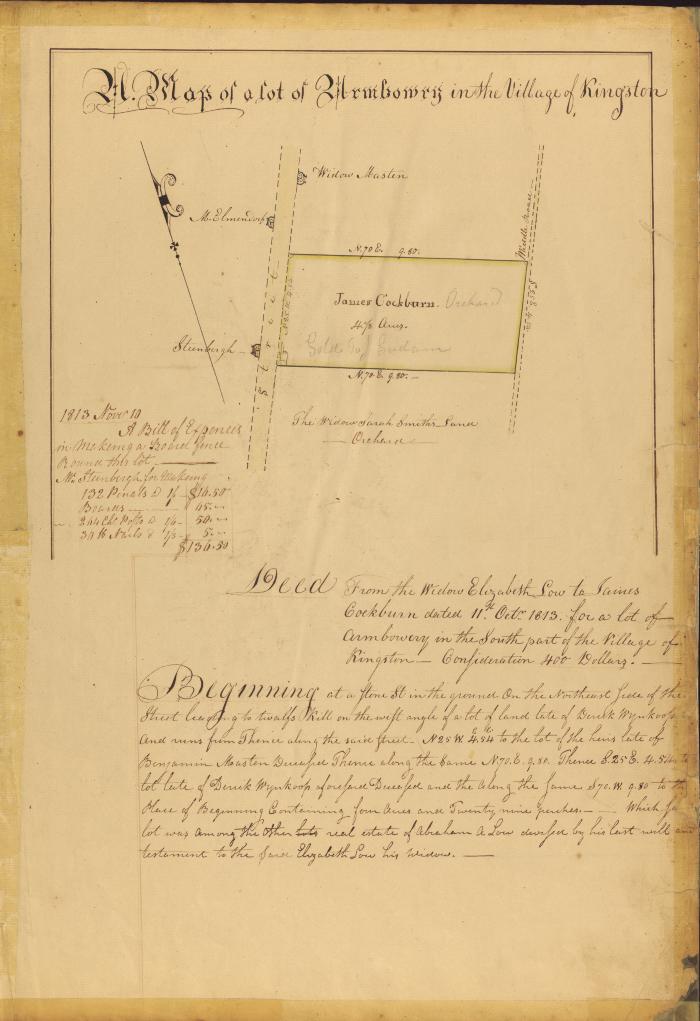 A. Map of a lot of Armbowry in the Village of Kingston
Widow Masten
M. Elmendorf
Middle
N. 70 E. 9.80.
James Cockburn. Orchard
4 1/8 Acres.
Sold To Ludam
Steenbergh
Street
N. 70 E. 9.80.
The Widow Sarah Smiths Land
Orchard
1813 Novr 10
A Bill of Expences
in Makeing a Board fence
Round this lot.
Mr Steenbergh for Makeing
132 Panals @ 1/- $16.50
Boards 65.
50.
Nails 5.
$136.50
Deed From the Widow Elizabeth Low to James
Cockburn dated 11th Octr 1813. for a lot of
Armbowery in the South part of the Village of
Kingston — Consideration 400 Dollars. —
Beginning at a stone set in the ground On the Northeast side of the
Street leading to twalfs Kill on the west angle of a lot of land late of Derick Wynkoop
And runs from Thence along the said street N 25 W. 4.54 to the lot of the heirs late of
Benjamin Masten Deceased Thence along the Same N 70. E. 9.80. Thence S. 25 E. 4.54 to
lot late of Derick Wynkoop aforesaid Deceased and the Along the Same S 70. W. 9.80 to the
Place of Beginning Containing four Acres and Twenty nine perches. — Which
lot was Among the other lots real estate of Abraham A Low devised by his last will and
testament to the Said Elizabeth Low his widow. —